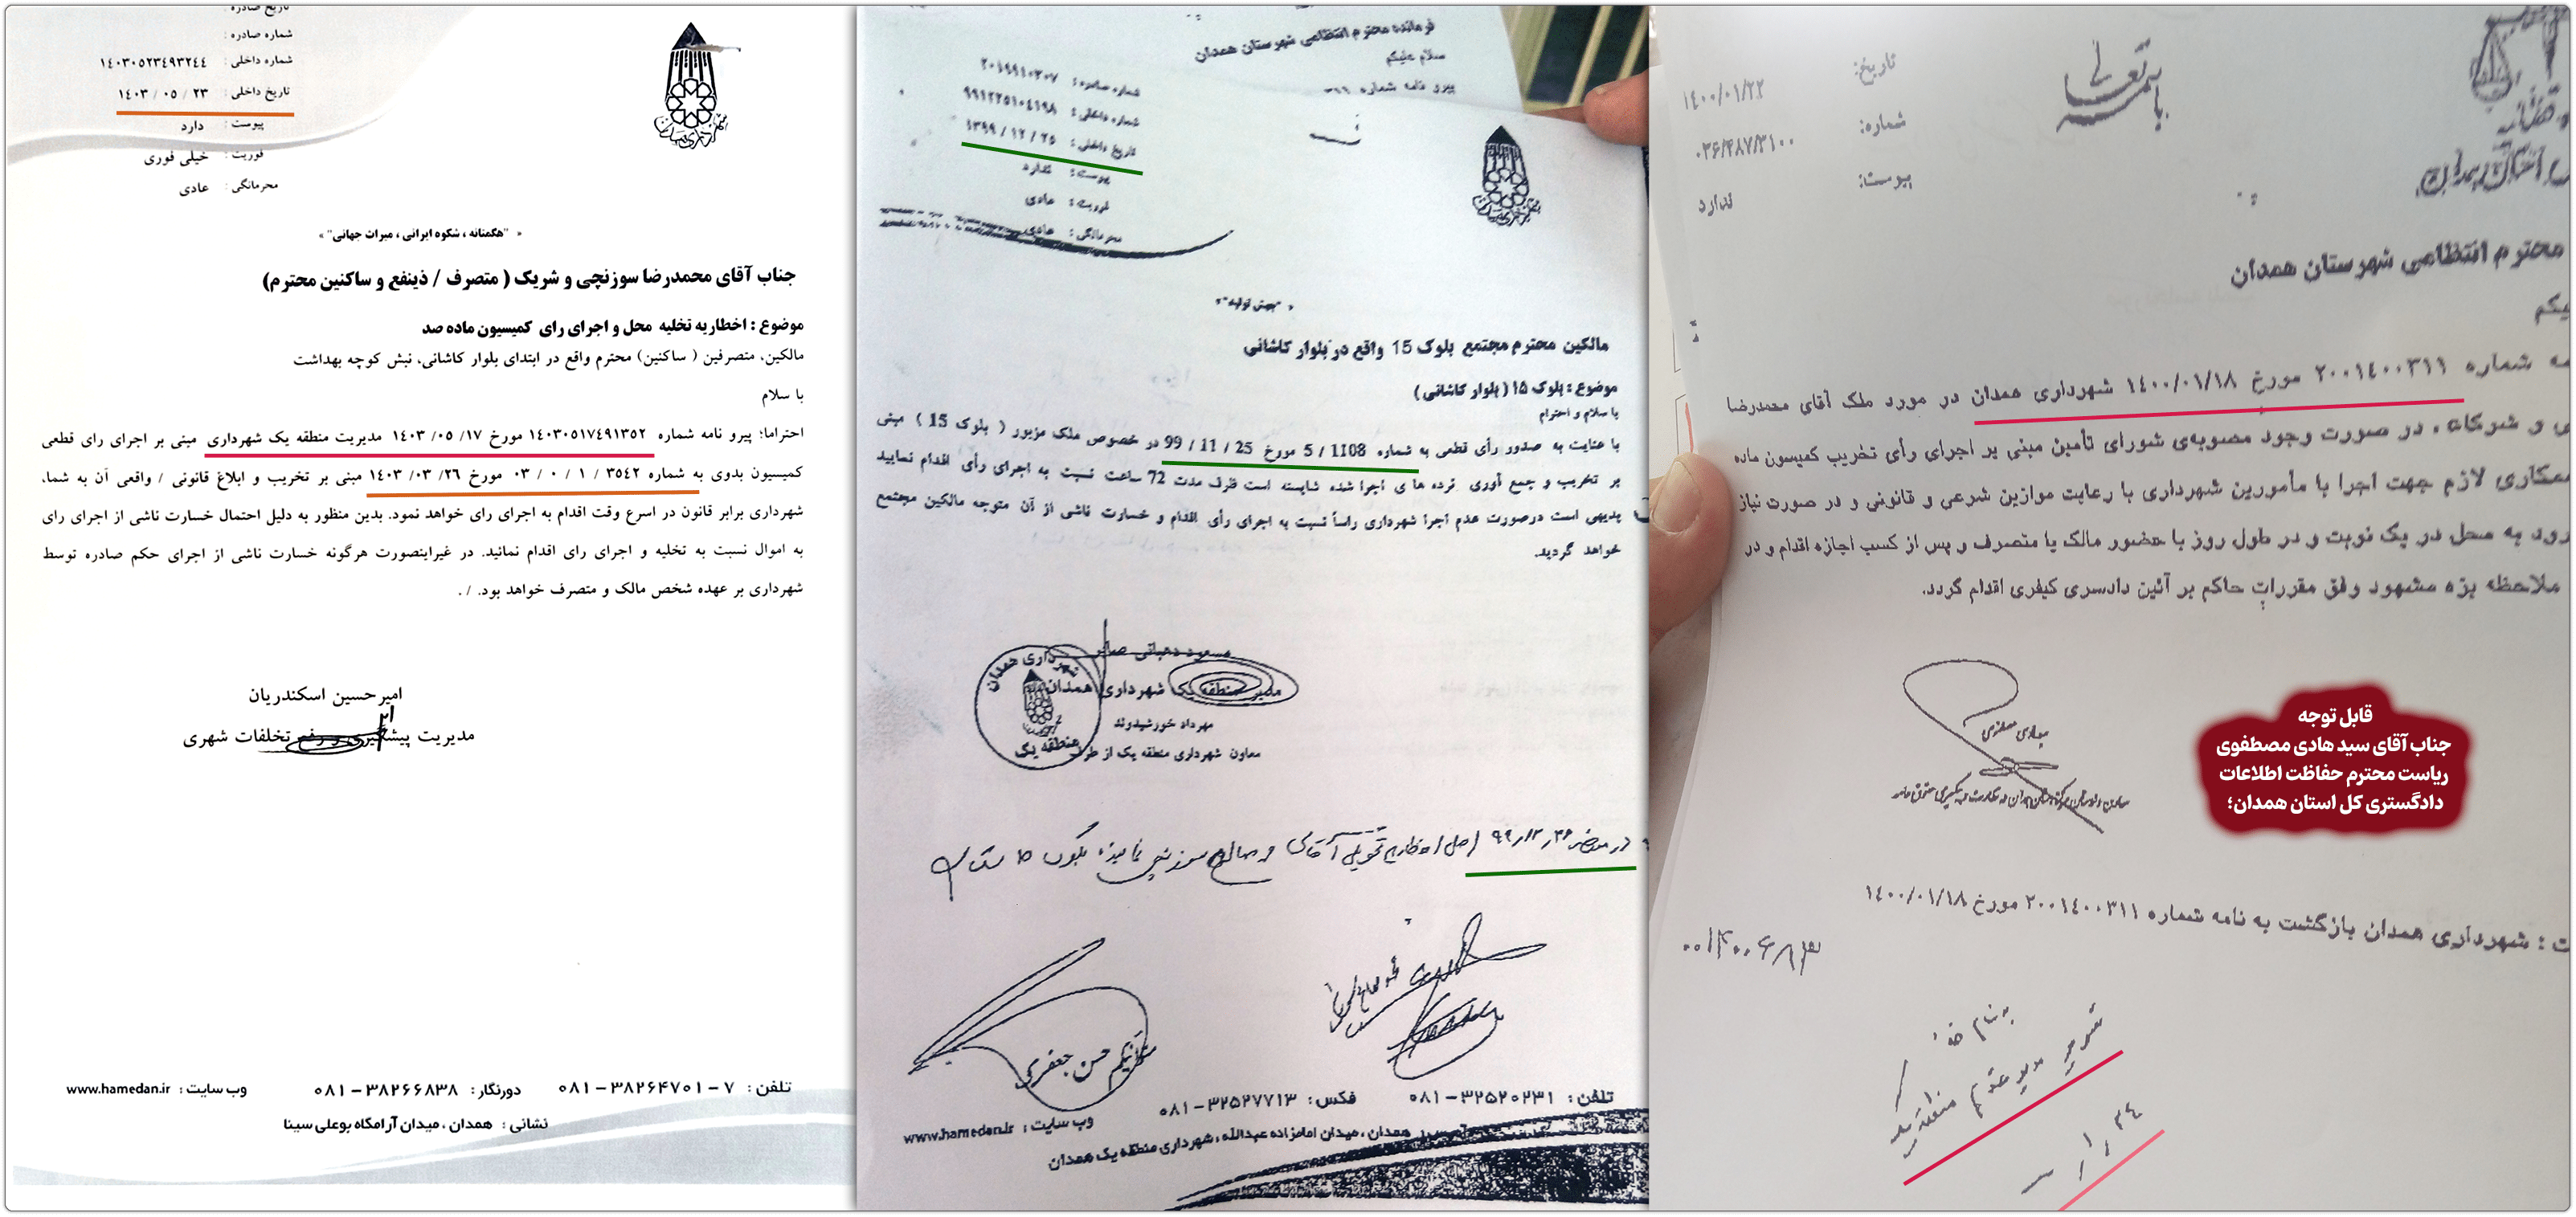 تاریخ صادره :
شماره صادره :
شماره داخلی : ۱۴۰۳۰۵۲۳۴۹۳۲۴۴
تاریخ داخلی : ۱۴۰۳ / ۰۵ / ۲۳
پیوست : دارد
فوریت : خیلی فوری
محرمانگی : عادی
« "هگمتانه ، شکوه ایرانی ، میراث جهانی" »
جناب آقای محمدرضا سوزنچی و شریک ( متصرف / ذینفع و ساکنین محترم)
موضوع : اخطاریه تخلیه محل و اجرای رای کمیسیون ماده صد
مالکین، متصرفین ( ساکنین) محترم واقع در ابتدای بلوار کاشانی، نبش کوچه بهداشت
با سلام
احتراما؛ پیرو نامه شماره ۱۴۰۳۰۵۱۷۴۹۱۳۵۲ مورخ ۱۷/ ۰۵/ ۱۴۰۳ مدیریت منطقه یک شهرداری مبنی بر اجرای رای قطعی
کمیسیون بدوی به شماره ۳۵۴۲ / ۱ / ۰ / ۰۳ مورخ ۲۶/ ۰۳/ ۱۴۰۳ مبنی بر تخریب و ابلاغ قانونی / واقعی آن به شما،
شهرداری برابر قانون در اسرع وقت اقدام به اجرای رای خواهد نمود. بدین منظور به دلیل احتمال خسارت ناشی از اجرای رای
به اموال نسبت به تخلیه و اجرای رای اقدام نمائید. در غیراینصورت هرگونه خسارت ناشی از اجرای حکم صادره توسط
شهرداری بر عهده شخص مالک و متصرف خواهد بود. / .
امیرحسین اسکندریان
مدیریت پیشگیری و رفع تخلفات شهری
تلفن : ۷-۳۸۲۶۴۷۰۱-۰۸۱ دورنگار : ۳۸۲۶۶۸۳۸-۰۸۱ وب سایت : www.hamedan.ir
نشانی : همدان ، میدان آرامگاه بوعلی سینا
فرمانده محترم انتظامی شهرستان همدان
سلام علیکم
پیرو نامه شماره
شماره صادره : ۲۰۱۹۹۱۰۳۰۷
شماره داخلی : ۹۹۱۲۲۵۱۰۴۱۹۸
تاریخ داخلی : ۱۳۹۹ / ۱۲ / ۲۵
پیوست : ندارد
فوریت : عادی
محرمانگی : عادی
« "جهش تولید" »
مالکین محترم مجتمع بلوک 15 واقع در بلوار کاشانی
موضوع : بلوک ۱۵ ( بلوار کاشانی )
با سلام و احترام
با عنایت به صدور رأی قطعی به شماره 1108 / 5 مورخ 25 / 11 / 99 در خصوص ملک مزبور ( بلوک 15 ) مبنی
بر تخریب و جمع آوری نرده های اجرا شده شایسته است ظرف مدت 72 ساعت نسبت به اجرای رأی اقدام نمایید
بدیهی است درصورت عدم اجرا شهرداری راساً نسبت به اجرای رأی اقدام و خسارت ناشی از آن متوجه مالکین مجتمع
خواهد گردید.
مسعود دهبانی صابر
مدیر منطقه یک شهرداری همدان
مهرداد خورشیدوند
معاون شهرداری منطقه یک از طرف
شهرداری همدان
منطقه یک
در مورخه ۹۹,۱۲,۲۶ اصل اخطاریه تحویل آقای سوزنچی نماینده بلوک ۱۵
حسن جعفری
تلفن : ۳۲۵۲۰۲۳۱-۰۸۱ فکس : ۳۲۵۲۷۷۱۳-۰۸۱
وب سایت : www.hamedan.ir
همدان ، میدان امامزاده عبدالله ، شهرداری منطقه یک همدان
باسمه تعالی
تاریخ: ۱۴۰۰/۰۱/۲۲
شماره: ۰۳۶/۴۸۷/۳۱۰۰
پیوست: ندارد
محترم انتظامی شهرستان همدان
شماره ۲۰۰۱۴۰۰۳۱۱ مورخ ۱۴۰۰/۰۱/۱۸ شهرداری همدان در مورد ملک آقای محمدرضا
و شرکاء، در صورت وجود مصوبه‌ی شورای تأمین مبنی بر اجرای رأی تخریب کمیسون ماده
همکاری لازم جهت اجرا با مأمورین شهرداری با رعایت موازین شرعی و قانونی و در صورت نیاز
به محل در یک نوبت و در طول روز با حضور مالک یا متصرف و پس از کسب اجازه اقدام و در
ملاحظه بزه مشهود وفق مقررات حاکم بر آئین دادسری کیفری اقدام گردد.
قابل توجه
جناب آقای سید هادی مصطفوی
ریاست محترم حفاظت اطلاعات
دادگستری کل استان همدان؛
: شهرداری همدان بازگشت به نامه شماره ۲۰۰۱۴۰۰۳۱۱ مورخ ۱۴۰۰/۰۱/۱۸
مدیر محترم منطقه یک